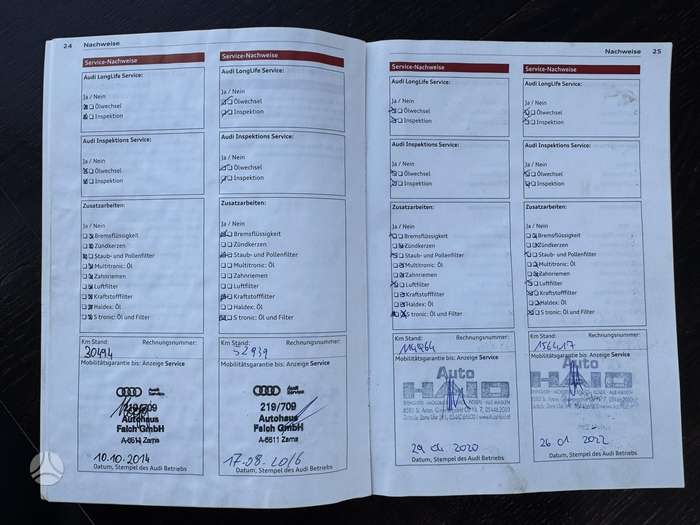 24 Nachweise
Service-Nachweise
Audi LongLife Service:
Ja / Nein
Ölwechsel
Inspektion
Audi Inspektions Service:
Ja / Nein
Ölwechsel
Inspektion
Zusatzarbeiten:
Ja / Nein
Bremsflüssigkeit
Zündkerzen
Staub- und Pollenfilter
Multitronic: Öl
Zahnriemen
Luftfilter
Kraftstofffilter
Haldex: Öl
S tronic: Öl und Filter
Km Stand: Rechnungsnummer:
30494
Mobilitätsgarantie bis: Anzeige Service
Audi Service
219/709
Autohaus
Falch GmbH
A-6511 Zams
10.10.2014
Datum, Stempel des Audi Betriebs
Service-Nachweise
Audi LongLife Service:
Ja / Nein
Ölwechsel
Inspektion
Audi Inspektions Service:
Ja / Nein
Ölwechsel
Inspektion
Zusatzarbeiten:
Ja / Nein
Bremsflüssigkeit
Zündkerzen
Staub- und Pollenfilter
Multitronic: Öl
Zahnriemen
Luftfilter
Kraftstofffilter
Haldex: Öl
S tronic: Öl und Filter
Km Stand: Rechnungsnummer:
52939
Mobilitätsgarantie bis: Anzeige Service
Audi Service
219/709
Autohaus
Falch GmbH
A-6511 Zams
17.08.2016
Datum, Stempel des Audi Betriebs
Nachweise 25
Service-Nachweise
Audi LongLife Service:
Ja / Nein
Ölwechsel
Inspektion
Audi Inspektions Service:
Ja / Nein
Ölwechsel
Inspektion
Zusatzarbeiten:
Ja / Nein
Bremsflüssigkeit
Zündkerzen
Staub- und Pollenfilter
Multitronic: Öl
Zahnriemen
Luftfilter
Kraftstofffilter
Haldex: Öl
S tronic: Öl und Filter
Km Stand: Rechnungsnummer:
Mobilitätsgarantie bis: Anzeige Service
Auto
HAID
29 04 2020
Datum, Stempel des Audi Betriebs
Service-Nachweise
Audi LongLife Service:
Ja / Nein
Ölwechsel
Inspektion
Audi Inspektions Service:
Ja / Nein
Ölwechsel
Inspektion
Zusatzarbeiten:
Ja / Nein
Bremsflüssigkeit
Zündkerzen
Staub- und Pollenfilter
Multitronic: Öl
Zahnriemen
Luftfilter
Kraftstofffilter
Haldex: Öl
S tronic: Öl und Filter
Km Stand: Rechnungsnummer:
156417
Mobilitätsgarantie bis: Anzeige Service
Auto
HAID
26 01 2022
Datum, Stempel des Audi Betriebs